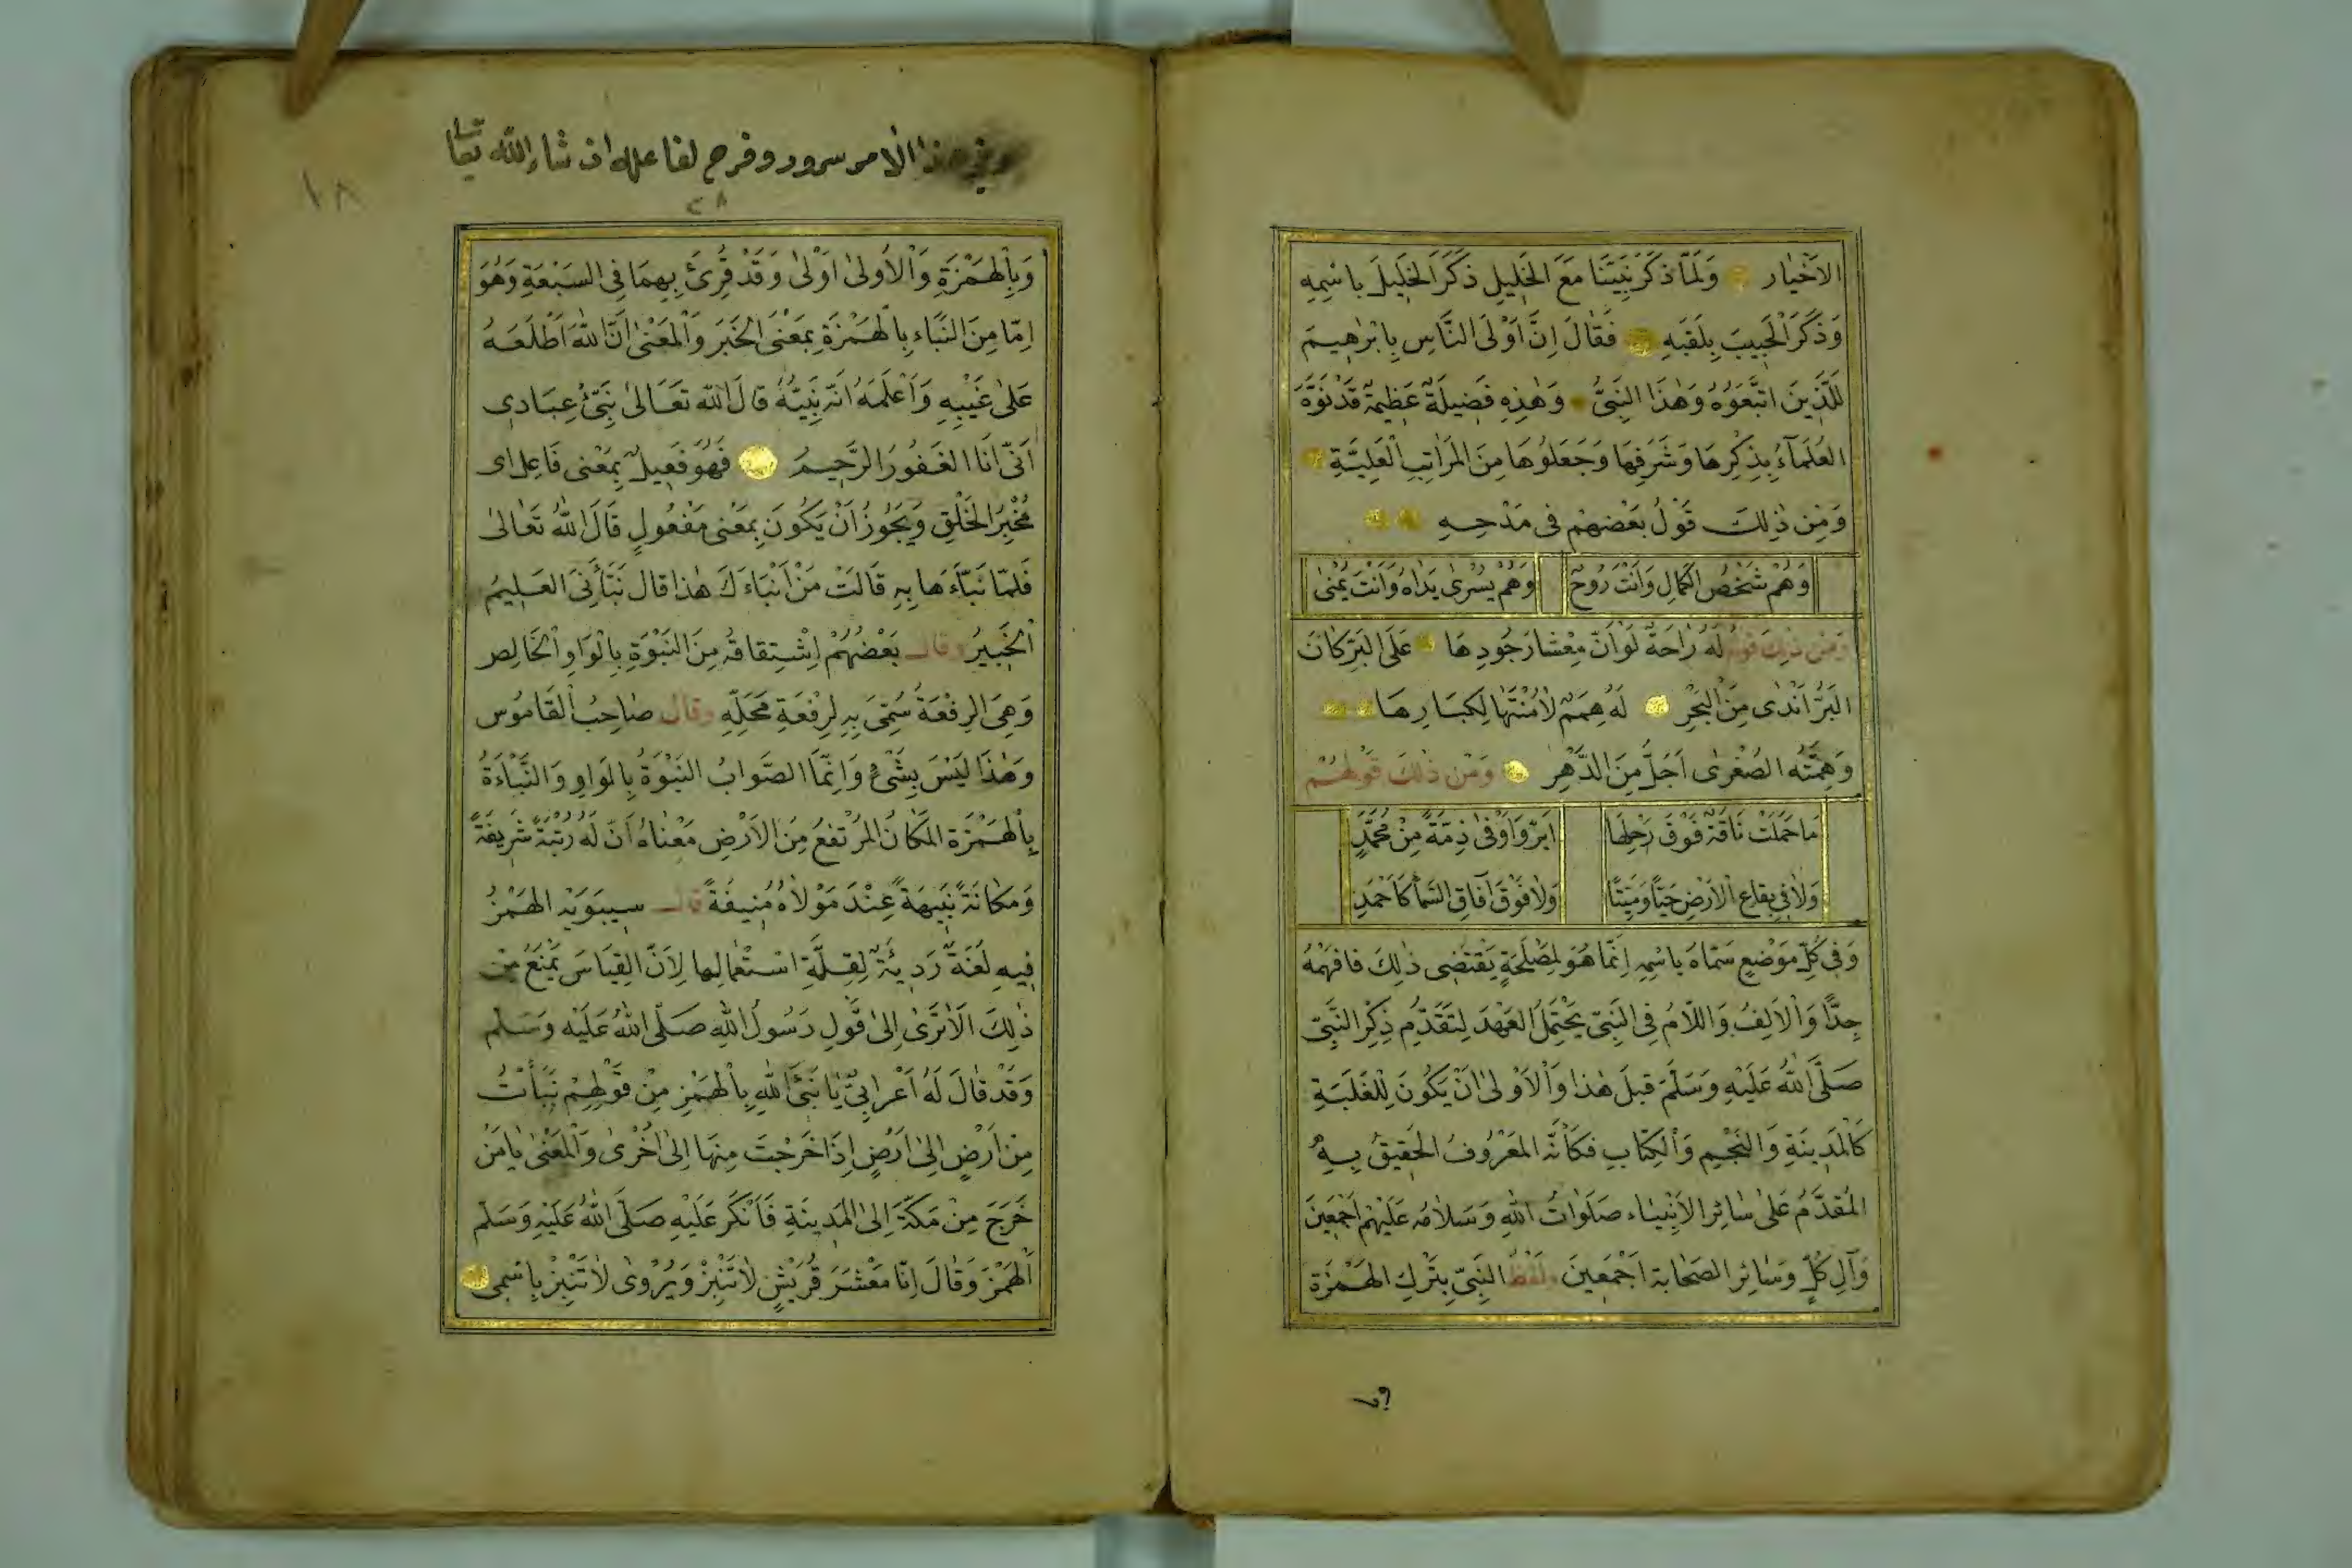 الاَخْيَار وَلَمَّا ذَكَرَ نَبِيَّنَا مَعَ الخَلِيلِ ذَكَرَ الخَلِيلَ بِاسْمِهِ
وَذَكَرَ الْحَبِيبَ بِلَقَبَهِ فَقَالَ اِنَّ اَوْلَى النَّاسِ بِاِبْرٰهِيمَ
لَلَّذِينَ اتَّبَعَوُهُ وَهٰذَا النَّبِىُّ وَهٰذِهِ فَضِيلَةٌ عَظِيمَةٌ قَدْ نَوَّهَ
العُلَمَآءُ بِذِكْرِهَا وَشَرَفِهَا وَجَعَلُوهَا مِنَ المَرَاتِبِ الْعَلِيَّةِ
وَمِن ذٰلِكَ قَوْلُ بَعْضِهِمْ فى مَدْحِهِ
وَهُمْ شَخْصُ الكَمَالِ وَاَنْتَ رُوحٌ وَهُمْ يُسْرىٰ يَدَاهُ وَاَنْتَ يُمْنىٰ
وَمِن ذٰلِكَ قَولُهُ لَهُ رَاحَةٌ لَوْ اَنَّ مِعْشَارَ جُودِهَا عَلَى البَرِّ كَانَ
البَرُّ اَنْدٰى مِنَ الْبَحْرِ لَهُ هِمَمٌ لاٰ مُنْتَهٰا لِكِبَارِهَا
وَهِمَّتُه الصُغْرٰى اَجَلُّ مِنَ الدَّهْرِ وَمِن ذٰلِكَ قَوْلُهُمْ
مَا حَمَلَتْ نَاقَةٌ فَوْقَ رَحْلِهَا اَبَرَّ وَاَوْفىٰ ذِمَّةً مِنْ مُحَمَّدٍ
وَلاٰ فِى بِقَاعِ الاَرْضِ حَيًّا وَمَيِّتًا وَلاٰ فَوْقَ آفَاقِ السَّمَا كَاَحْمَدِ
وَفِى كُلِّ مَوْضِعٍ سَمَّاهُ بِاسْمِهِ اِنَّمَا هُوَ لِمَصْلَحَةٍ يَقْتَضِى ذٰلِكَ فَافْهَمْهُ
جِدًّا وَالاَلِفُ وَاللاّمُ فِى النَّبِىّ يَحْتَمِلُ العَهْدَ لِتَقَدُّمِ ذِكْرِ النَّبِىّ
صَلَّى اللهُ عَلَيْهِ وَسَلَّمَ قَبلَ هٰذا وَالاَوْلىٰ اَنْ يَكُونَ لِلْغَلَبَةِ
كَالمَدِينَةِ وَالنَّجْمِ وَالْكِتَابِ فَكَاَنَّهُ المَعْرُوفُ الحَقِيقُ بِهِ
المُقَدَّمُ عَلىٰ سَائِرِ الاَنْبِيَاء صَلَوٰاتُ اللهِ وَسَلاٰمُه عَلَيْهِمْ اَجْمَعِينَ
وَآلِ كُلٍّ وَسَائِرِ الصَحَابَة اَجْمَعِينَ وَلَفْظُ النَّبِىّ بِتَرْكِ الهَمْزَة
وفى هذا الامر سرور وفرح لفاعله ان شاء الله تعا
٢٨
١٨
وَبِالْهَمْزَةِ وَالْاُولىٰ اَوْلىٰ وَقَدْ قُرِئَ بِهِمَا فِى السَبْعَةِ وَهُوَ
اِمَّا مِنَ النَّبَاء بِالْهَمْزَةِ بِمَعْنَى الخَبَر وَالْمَعْنٰى اَنَّ اللهَ اَطْلَعَهُ
عَلىٰ غَيْبِهِ وَاَعْلَمَهُ اَنَّهُ نَبِيُّهُ قالَ اللّه تَعَالىٰ نَبِّئْ عِبَادِى
اَنِّى اَنَا الغَفُورُ الرَّحِيمُ فَهُوَ فَعِيلٌ بِمَعْنى فَاعِل اى
مُخْبِرُ الخَلْقِ وَيَجُوزُ اَنْ يَكُونَ بِمَعْنى مَفْعُولٍ قَالَ اللهُ تَعَالىٰ
فَلَمَّا نَبَّاَهَا بِهِ قَالَتْ مَنْ اَنْبَاَكَ هٰذَا قَالَ نَبَّأَنِىَ العَلِيمُ
الْخَبِيرُ وَقالَ بَعْضُهُمْ اِشْتِقاقُه مِنَ النَبْوَةِ بِالْوَاوِ الْخَالِص
وَهِىَ الرِفْعَةُ سُمِّىَ بِهِ لِرِفْعَةِ مَحَلِّهِ وَقَالَ صَاحِبُ القَامُوس
وَهٰذَا لَيْسَ بِشَىْءٍ وَاِنَّمَا الصَّوَابُ النَبْوَةُ بِالوَاوِ وَالنَّبْاَةُ
بِالهَمْزَة المَكَانُ المُرْتَفِعُ مِنَ الاَرْضِ مَعْنَاهُ اَنّ لَهُ رُتْبَةً شَرِيفَةً
وَمَكَانَةً نَبِيهَةً عِنْدَ مَوْلاٰهُ مُنِيفَةً قالَ سِيبَوَيْهِ الهَمْزُ
فِيهِ لُغَةٌ رَدِيئَةٌ لِقِلَّةِ اسْتِعْمَالِهَا لِاَنّ القِيَاسَ يَمْنَعُ مِن
ذٰلِكَ اَلاٰ تَرىٰ اِلىٰ قَوْلِ رَسُولُ اللهِ صَلَّى اللهُ عَلَيْهِ وَسَلَّم
وَقَدْ قَالَ لَهُ اَعْرَابِىٌّ يَا نَبِىءَ اللهِ بِالْهَمْزِ مِنْ قَوْلِهِمْ نَبَأْتُ
مِنْ اَرْضٍ اِلىٰ اَرْضٍ اِذَا خَرَجْتَ مِنْهَا اِلىٰ اُخْرىٰ وَالْمَعْنىٰ يَا مَنْ
خَرَجَ مِنْ مَكَّةَ اِلىٰ المَدِينَةِ فَاَنْكَرَ عَلَيْهِ صَلَّى اللهُ عَلَيْهِ وَسَلَّم
اَلهَمْزَ وَقَالَ اِنَّا مَعْشَرَ قُرَيْشٍ لاٰ نَنْبِزْ وَيُرْوىٰ لاٰ تَنْبِزْ بِاسْمِى